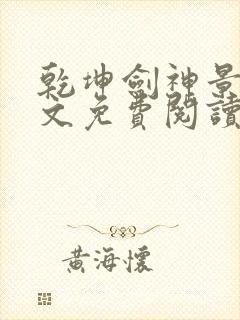 乾坤劍神景
文免費閱讀
黃海懷